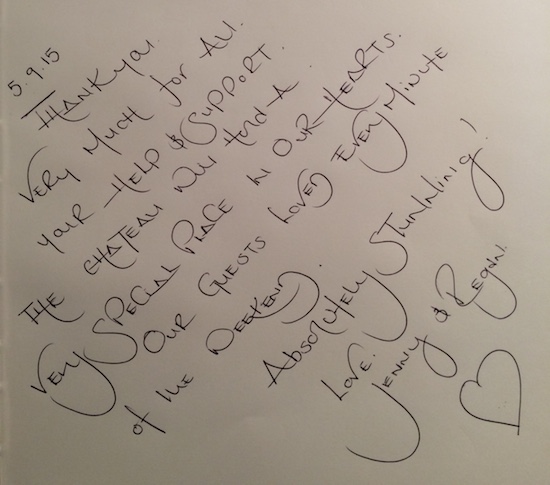 5.9.15
THANKYOU
VERY MUCH for ALL.
YOUR HELP & SUPPORT.
THE CHATEAU WILL HOLD A
VERY SPECIAL PLACE IN OUR HEARTS.
OUR GUESTS LOVED EVERY MINUTE
of THE WEEKEND.
ABSOLUTELY STUNNING!
LOVE.
JENNY & REGAN.